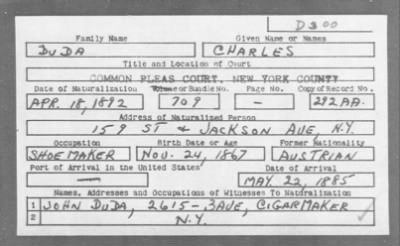 D 300
Family Name Given Name or Names
DUDA CHARLES
Title and Location of Court
COMMON PLEAS COURT, NEW YORK COUNTY
Date of Naturalization Volume or Bundle No. Page No. Copy of Record No.
APR. 18, 1892 709 - 292 AA.
Address of Naturalized Person
159 ST & JACKSON AVE, N.Y.
Occupation Birth Date or Age Former Nationality
SHOEMAKER NOV. 24, 1867 AUSTRIAN
Port of Arrival in the United States Date of Arrival
— MAY 22, 1885
Names, Addresses and Occupations of Witnesses To Naturalization
1 JOHN DUDA, 2615-3AVE, CIGARMAKER
2 N.Y.